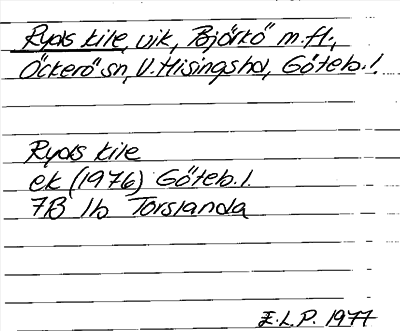 Ryds kile, vik, Björkö m.fl.,
Öckerö sn, V. Hisings hd, Göteb. l.
Ryds kile
ek (1976) Göteb. l.
7B 1b Torslanda
E.L.P. 1977